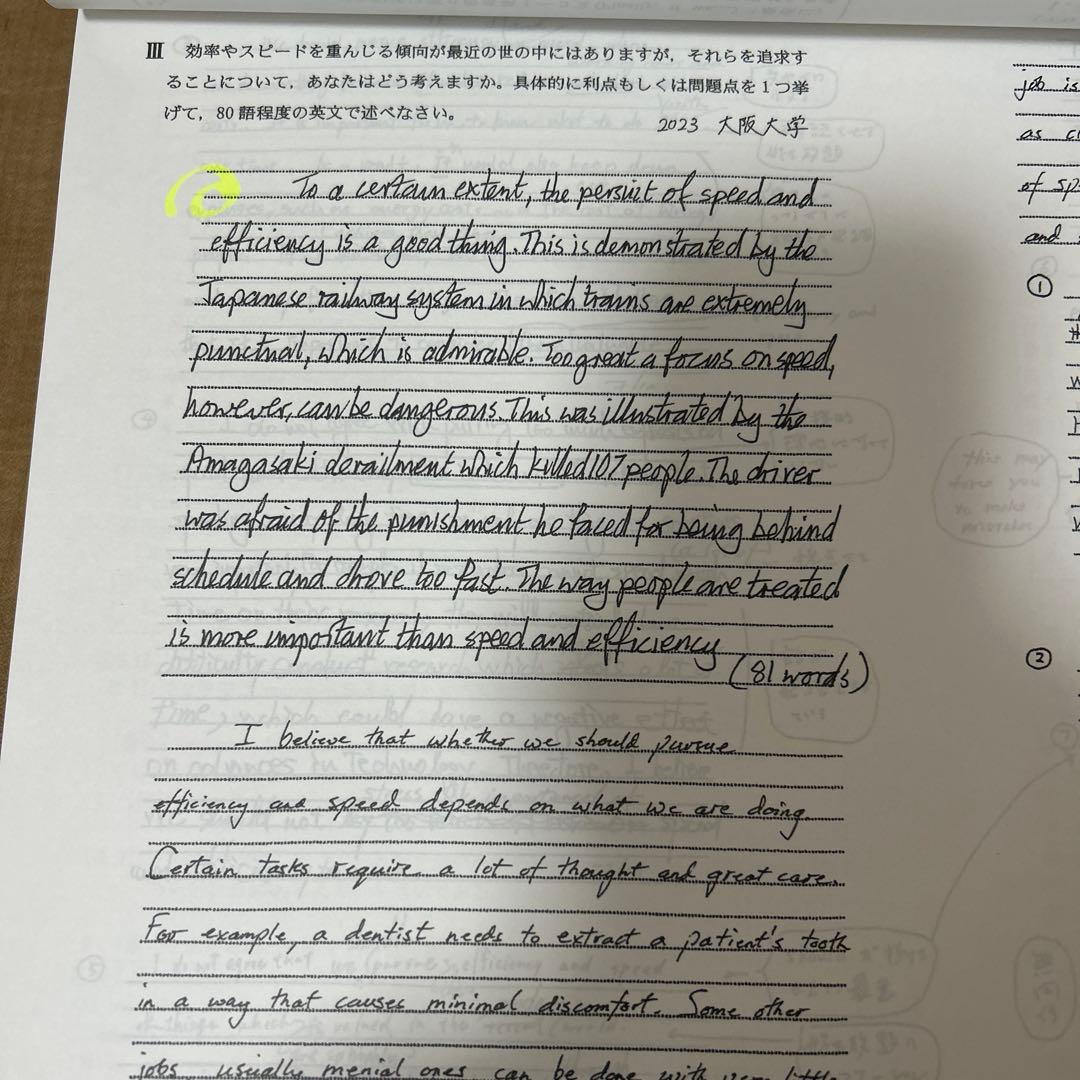 III 効率やスピードを重んじる傾向が最近の世の中にはありますが，それらを追求す
ることについて，あなたはどう考えますか。具体的に利点もしくは問題点を1つ挙
げて，80語程度の英文で述べなさい。
2023 大阪大学
To a certain extent, the persuit of speed and
efficiency is a good thing. This is demonstrated by the
Japanese railway system in which trains are extremely
punctual, which is admirable. Too great a focus on speed,
however, can be dangerous. This was illustrated by the
Amagasaki derailment which killed 107 people. The driver
was afraid of the punishment he faced for being behind
schedule and drove too fast. The way people are treated
is more important than speed and efficiency
(81 words)
I believe that whether we should pursue
efficiency and speed depends on what we are doing.
Certain tasks require a lot of thought and great care.
For example, a dentist needs to extract a patient's tooth
in a way that causes minimal discomfort. Some other
jobs, usually menial ones, can be done with very little
job is
as
of
and
①
②